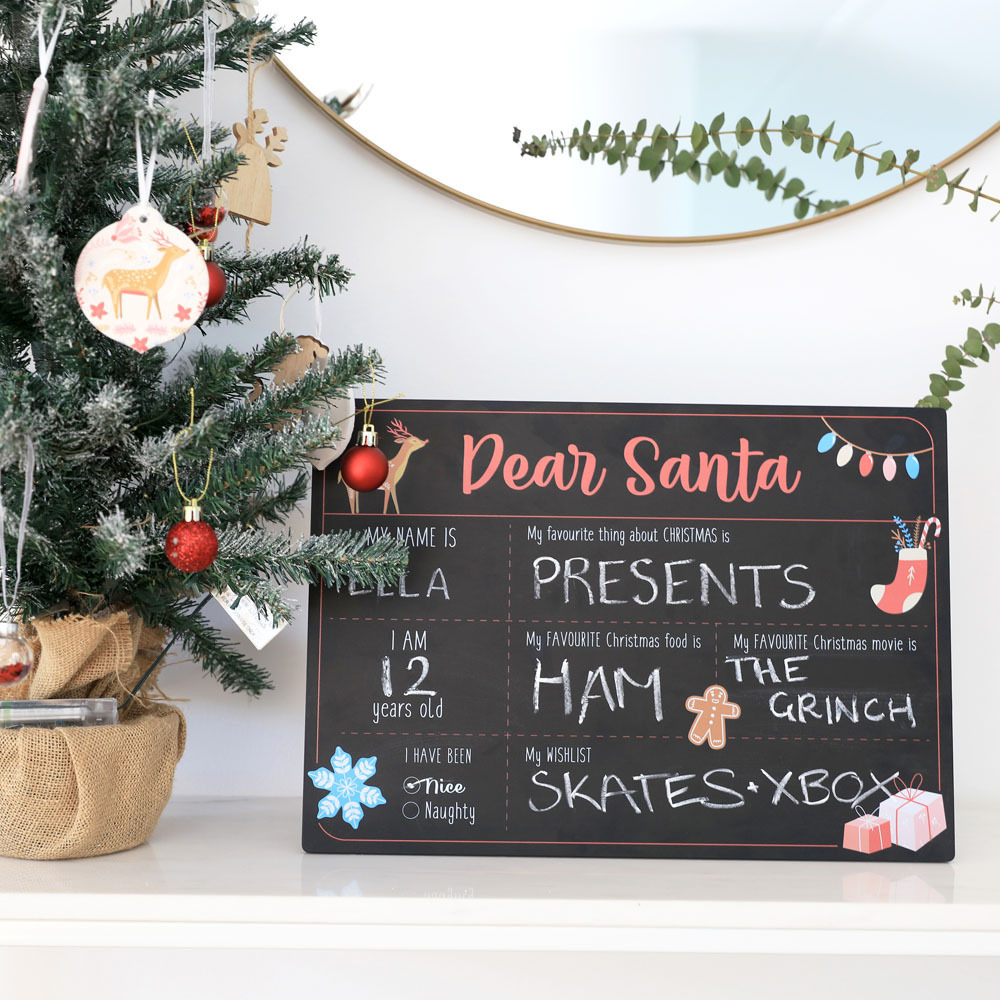 Dear Santa
MY NAME IS
My favourite thing about CHRISTMAS is
PRESENTS
I AM
12
years old
My FAVOURITE Christmas food is
HAM
My FAVOURITE Christmas movie is
THE
GRINCH
I HAVE BEEN
Nice
Naughty
My WISHLIST
SKATES + XBOX